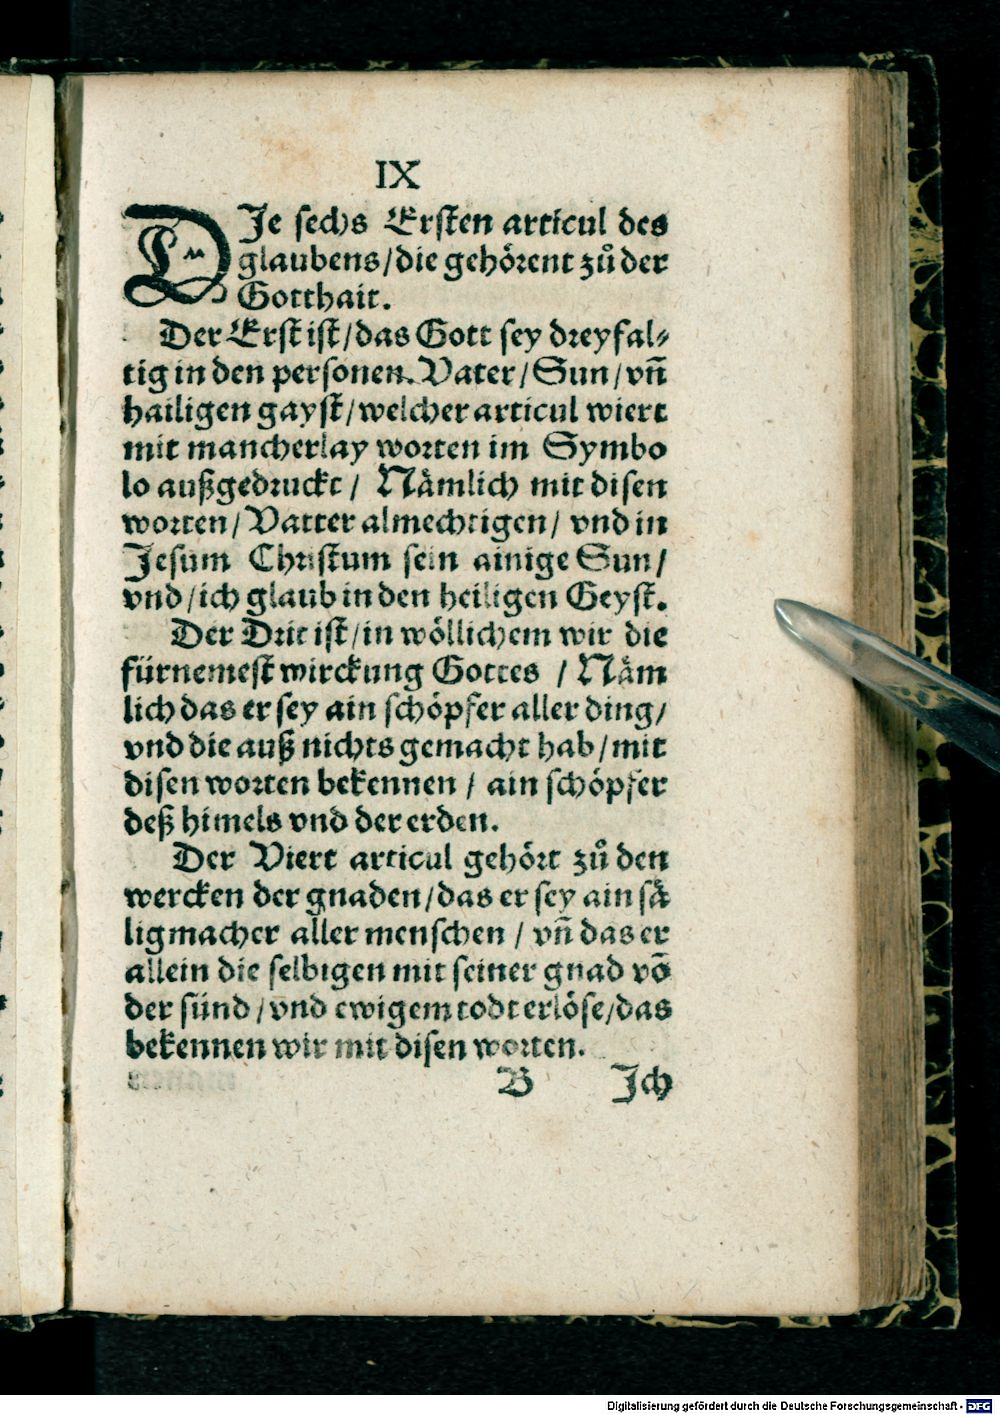 IX
DJe sechs Ersten articul des
glaubens/die gehörent zů der
Gotthait.
Der Erst ist/das Gott sey dreyfal⸗
tig in den personen. Vater/Sun/vn̄
hailigen gayst/welcher articul wiert
mit mancherlay worten im Symbo
lo außgedruckt/ Nämlich mit disen
worten/Vatter almechtigen/ vnd in
Jesum Christum sein ainige Sun/
vnd/ich glaub in den heiligen Geyst.
Der Drit ist/in wöllichem wir die
fürnemest wirckung Gottes /Näm
lich das er sey ain schöpfer aller ding/
vnd die auß nichts gemacht hab/mit
disen worten bekennen / ain schöpfer
deß himels vnd der erden.
Der Viert articul gehört zů den
wercken der gnaden/das er sey ain sä
ligmacher aller menschen / vn̄ das er
allein die selbigen mit seiner gnad vō
der sünd/vnd ewigem todt erlöse/das
bekennen wir mit disen worten.
B Jch
Digitalisierung gefördert durch die Deutsche Forschungsgemeinschaft - DFG